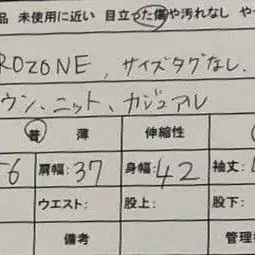 品 未使用に近い 目立った傷や汚れなし や
ROZONE, サイズタグなし.
ウン、ニット、カジュアル
着 薄 伸縮性
6 肩幅: 37 身幅: 42 袖丈:
ウエスト: 股上: 股下:
備考 管理